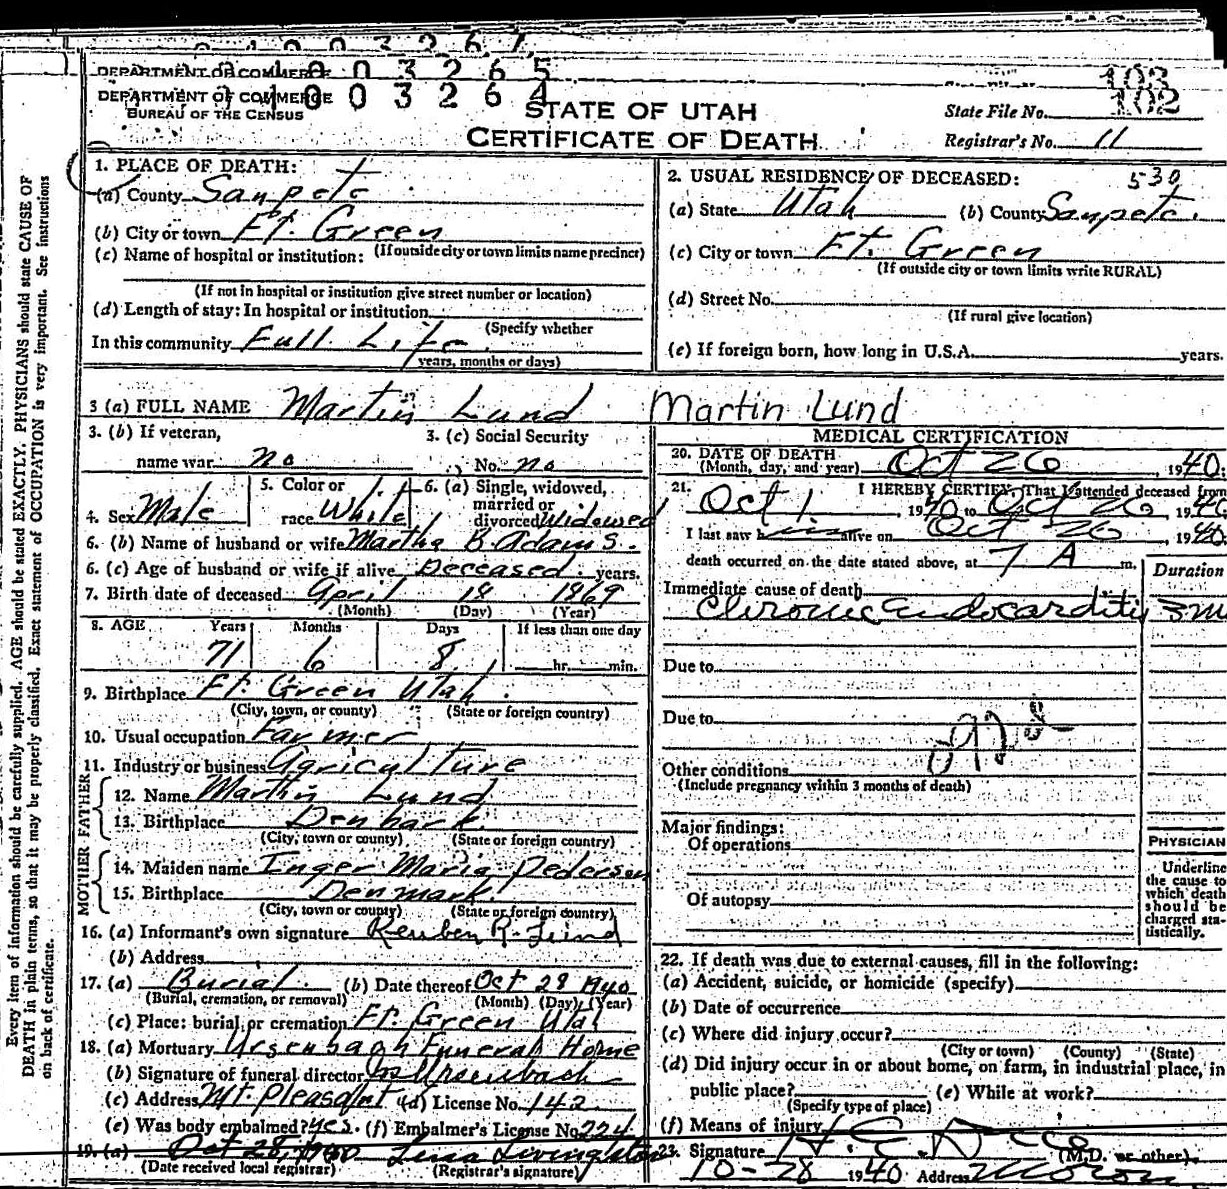 DEPARTMENT OF COMMERCE 1003265
DEPARTMENT OF COMMERCE 1003264
BUREAU OF THE CENSUS
STATE OF UTAH
CERTIFICATE OF DEATH
103
State File No. 102
Registrar's No. 11
Every item of information should be carefully supplied. AGE should be stated EXACTLY. PHYSICIANS should state CAUSE OF
DEATH in plain terms, so that it may be properly classified. Exact statement of OCCUPATION is very important. See instructions
on back of certificate.
1. PLACE OF DEATH:
(a) County Sanpete
(b) City or town Ft. Green
(If outside city or town limits name precinct)
(c) Name of hospital or institution:
(If not in hospital or institution give street number or location)
(d) Length of stay: In hospital or institution
(Specify whether
In this community Full Life
years, months or days)
2. USUAL RESIDENCE OF DECEASED: 530
(a) State Utah (b) County Sanpete.
(c) City or town Ft. Green
(If outside city or town limits write RURAL)
(d) Street No.
(If rural give location)
(e) If foreign born, how long in U.S.A. years.
3 (a) FULL NAME Martin Lund Martin Lund
3. (b) If veteran,
name war no
3. (c) Social Security
No. no
4. Sex Male
5. Color or
race White
6. (a) Single, widowed,
married or
divorced Widowed
6. (b) Name of husband or wife Martha B. Adams.
6. (c) Age of husband or wife if alive Deceased. years.
7. Birth date of deceased April 18 1869
(Month) (Day) (Year)
8. AGE Years Months Days If less than one day
71 6 8 hr. min.
9. Birthplace Ft. Green Utah.
(City, town, or county) (State or foreign country)
10. Usual occupation Farmer
11. Industry or business Agriculture
FATHER
12. Name Martin Lund
13. Birthplace Denmark.
(City, town or county) (State or foreign country)
MOTHER
14. Maiden name Inger Maria Pedersen
15. Birthplace Denmark.
(City, town or county) (State or foreign country)
16. (a) Informant's own signature Reuben R. Lund
(b) Address
17. (a) Burial. (b) Date thereof Oct 28 1940
(Burial, cremation, or removal) (Month) (Day) (Year)
(c) Place: burial or cremation Ft. Green Utah
18. (a) Mortuary Ursenbach Funeral Home
(b) Signature of funeral director Ursenbach
(c) Address Mt. Pleasant (d) License No. 142
(e) Was body embalmed? yes. (f) Embalmer's License No. 224
19. (a) Oct 28, 1940 Livingston
(Date received local registrar) (Registrar's signature)
MEDICAL CERTIFICATION
20. DATE OF DEATH
(Month, day, and year) Oct 26, 1940.
21. I HEREBY CERTIFY, That I attended deceased from
Oct 1, 1940 to Oct 26, 1940
I last saw him alive on Oct 26, 1940.
death occurred on the date stated above, at 7 A m. Duration
Immediate cause of death
Chronic Endocarditis 3 m
Due to
Due to
Other conditions
(Include pregnancy within 3 months of death)
Major findings:
Of operations
Of autopsy
PHYSICIAN
Underline
the cause to
which death
should be
charged sta-
tistically.
22. If death was due to external causes, fill in the following:
(a) Accident, suicide, or homicide (specify)
(b) Date of occurrence
(c) Where did injury occur?
(City or town) (County) (State)
(d) Did injury occur in or about home, on farm, in industrial place, in
public place? (e) While at work?
(Specify type of place)
(f) Means of injury
23. Signature (M.D. or other).
10-28 1940 Address Moroni